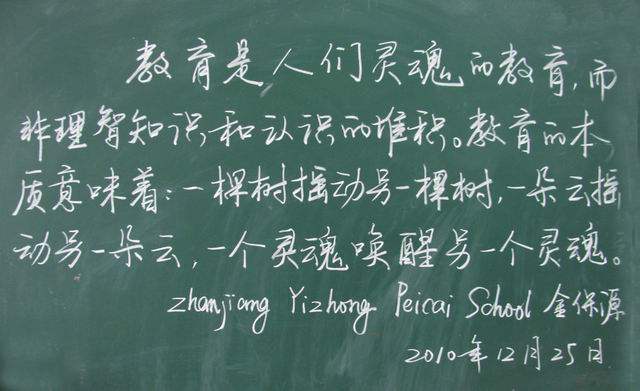 教育是人们灵魂的教育,而
非理智知识和认识的堆积。教育的本
质意味着:一棵树摇动另一棵树,一朵云摇
动另一朵云,一个灵魂唤醒另一个灵魂。
Zhanjiang Yizhong Peicai School 金保源
2010年12月25日